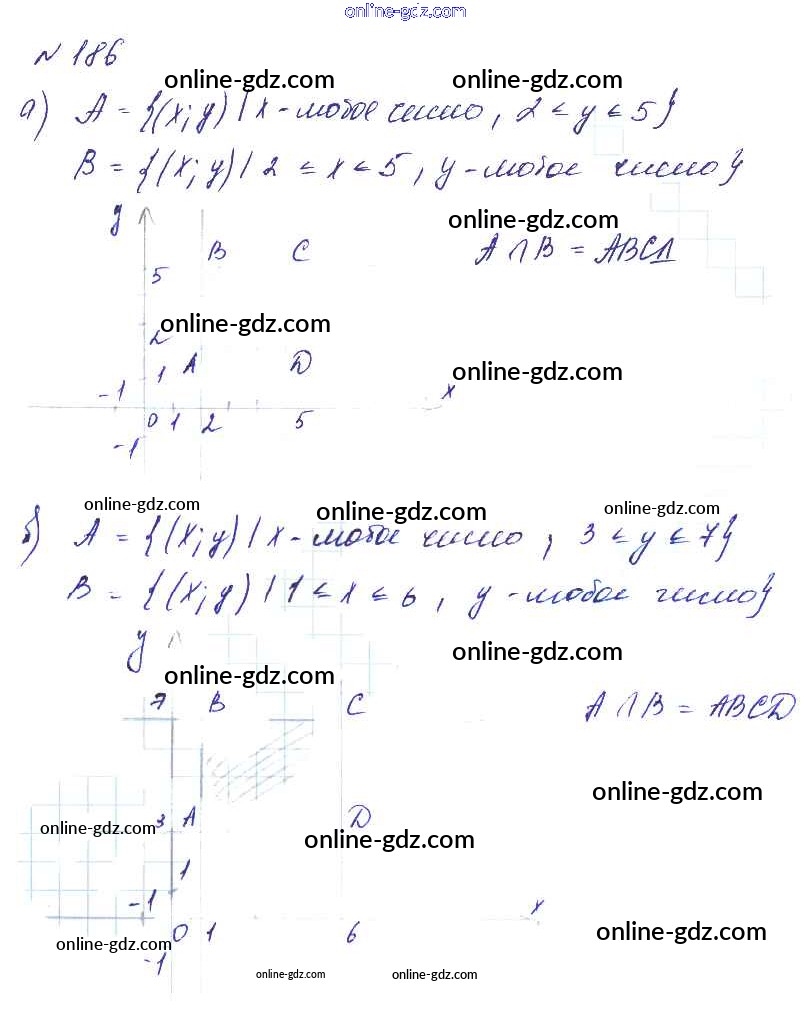 online-gdz.com
N 186
online-gdz.com online-gdz.com
а) A = {(x; y) | x - любое число, 2 ≤ y ≤ 5}
B = {(x; y) | 2 ≤ x ≤ 5, y - любое число}
online-gdz.com
y B C A ∩ B = ABCD
5
online-gdz.com
2
1 A D online-gdz.com
-1 x
0 1 2 5
-1
online-gdz.com online-gdz.com online-gdz.com
б) A = {(x; y) | x - любое число, 3 ≤ y ≤ 7}
B = {(x; y) | 1 ≤ x ≤ 6, y - любое число}
y online-gdz.com
online-gdz.com
7 B C A ∩ B = ABCD
online-gdz.com
online-gdz.com 3 A D
online-gdz.com
1
-1 x
0 1 6 online-gdz.com
online-gdz.com
-1
online-gdz.com online-gdz.com